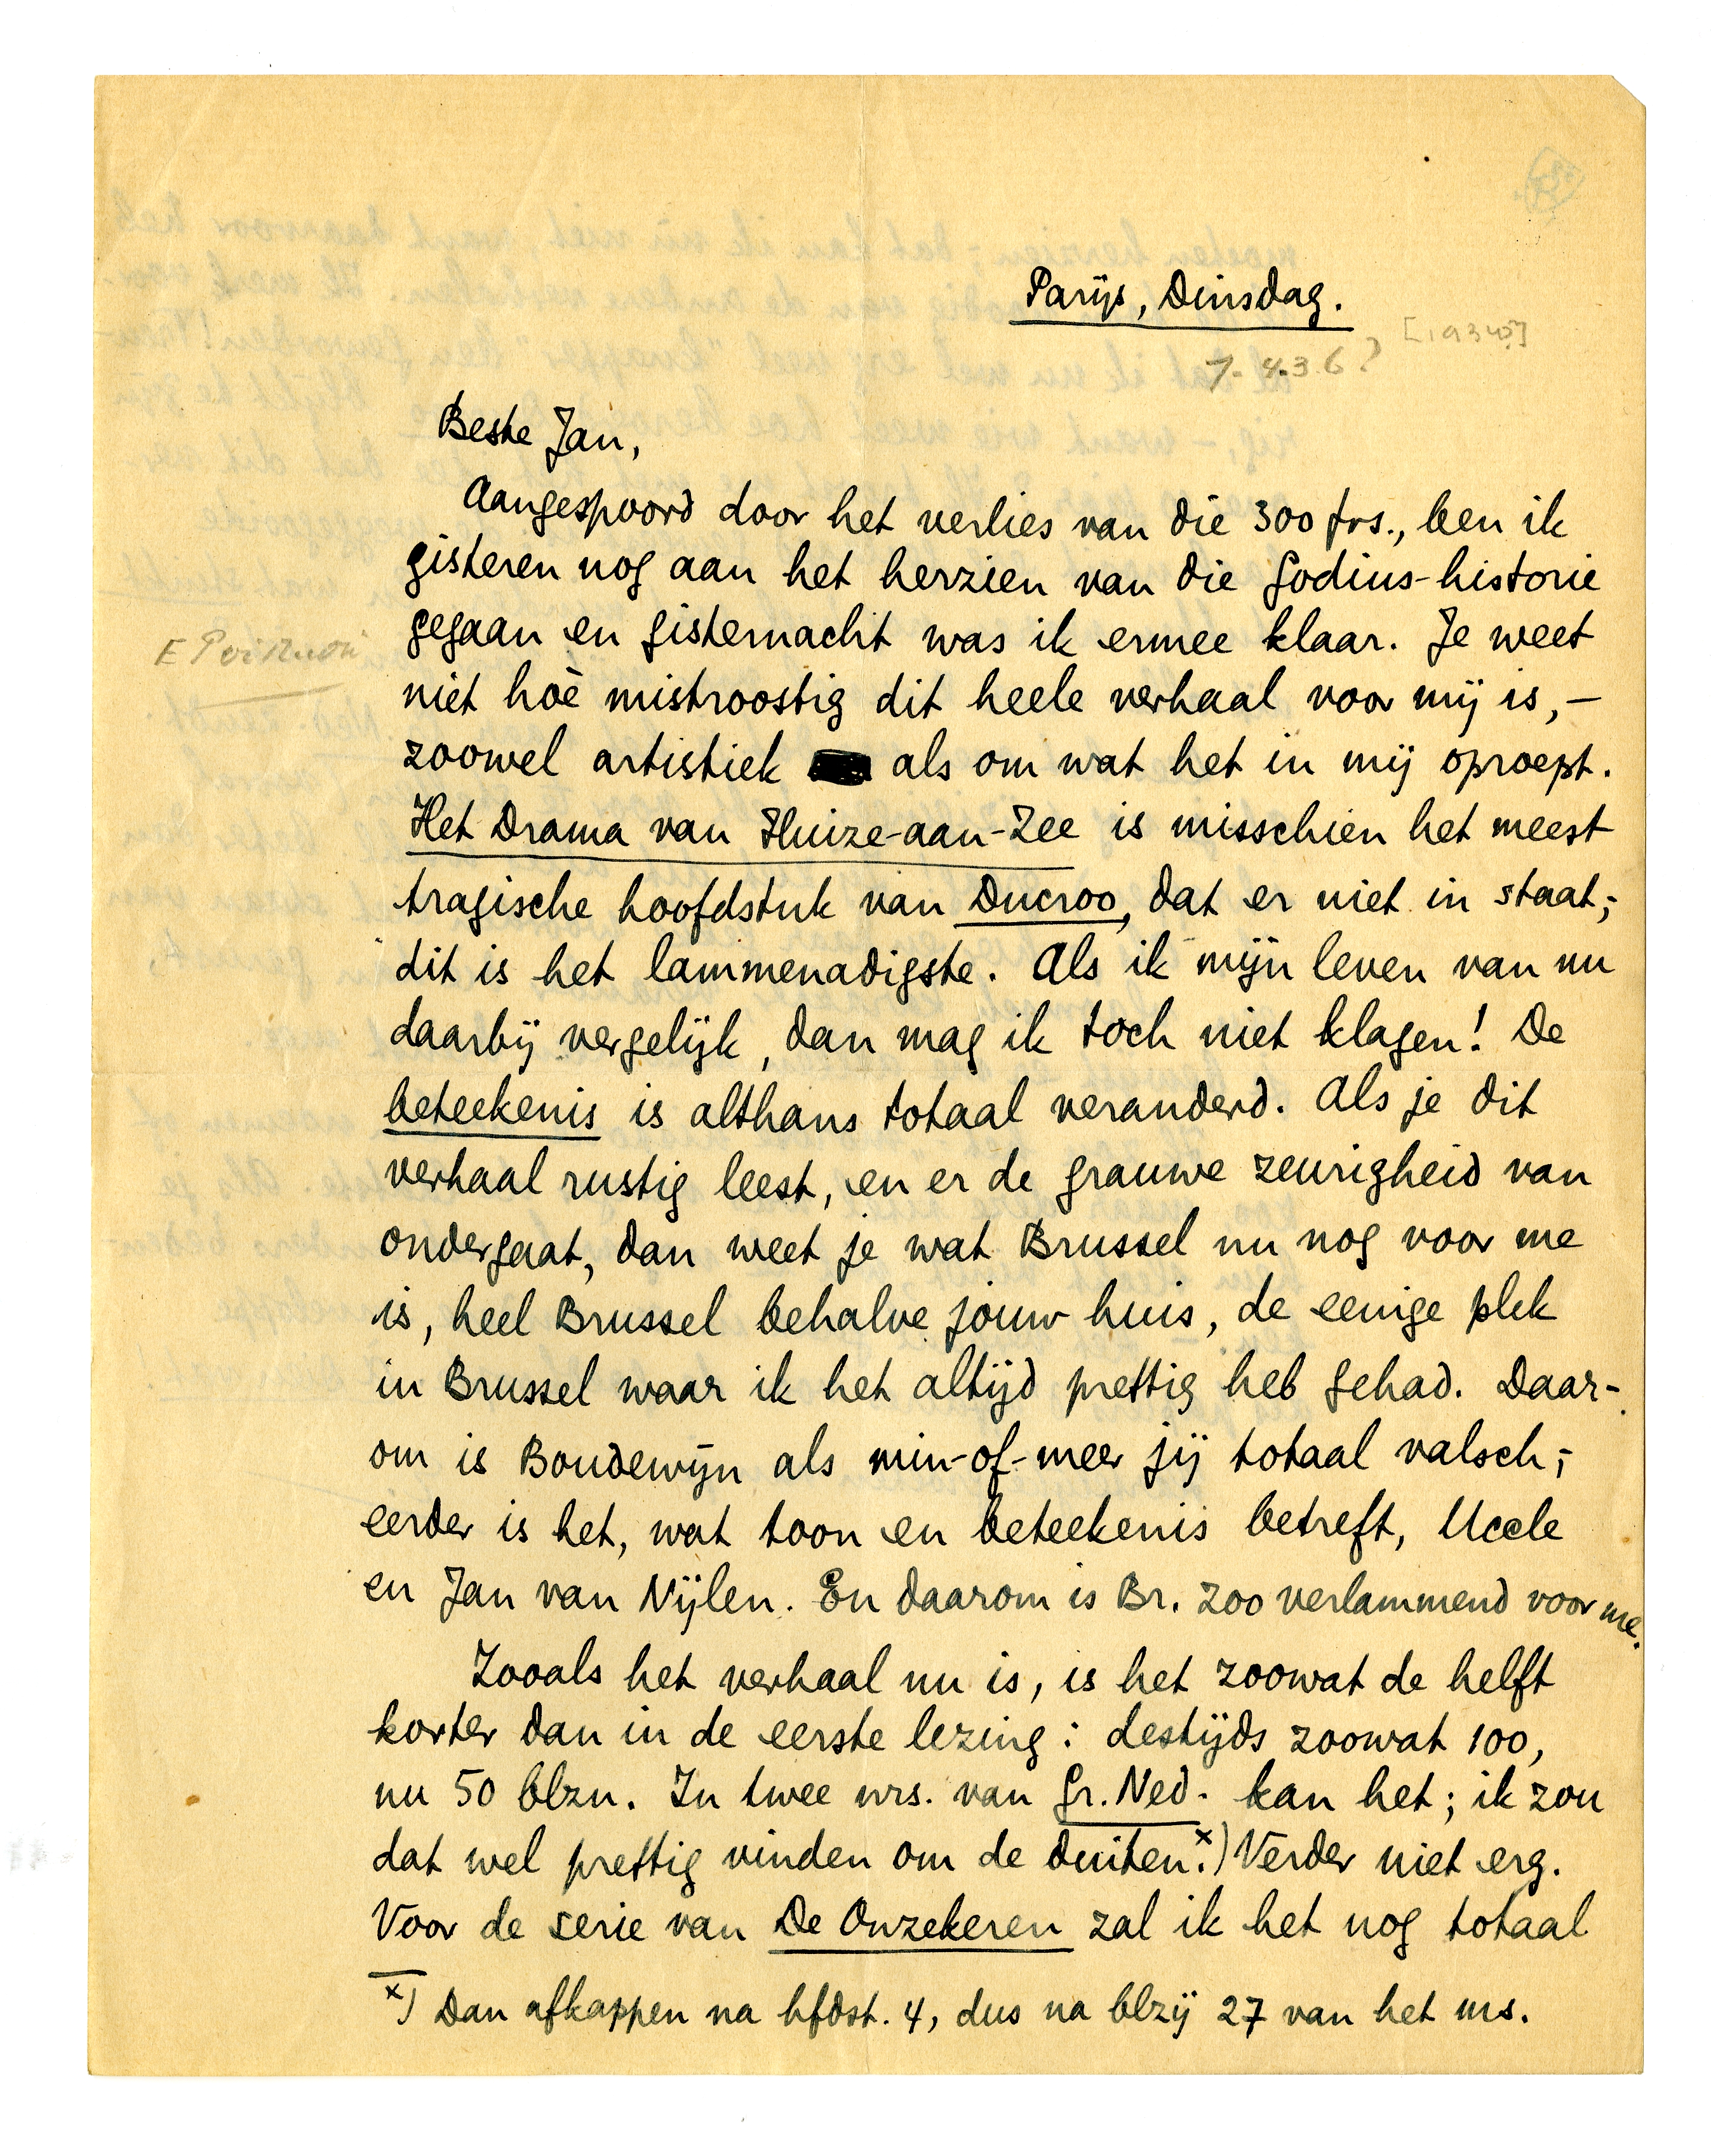 Parijs, Dinsdag.
[1934?]
7.4.36?
Beste Jan,
Aangespoord door het verlies van die 300 frs., ben ik
gisteren nog aan het herzien van die Godius-historie
gegaan en gisternacht was ik ermee klaar. Je weet
niet hoè mistroostig dit heele verhaal voor mij is, –
zoowel artistiek als om wat het in mij oproept.
Het Drama van Huize-aan-Zee is misschien het meest
tragische hoofdstuk van Ducroo, dat er niet in staat;
dit is het lammenadigste. Als ik mijn leven van nu
daarbij vergelijk, dan mag ik toch niet klagen! De
beteekenis is althans totaal veranderd. Als je dit
verhaal rustig leest, en er de grauwe zeurigheid van
ondergaat, dan weet je wat Brussel nu nog voor me
is, heel Brussel behalve jouw huis, de eenige plek
in Brussel waar ik het altijd prettig heb gehad. Daar-
om is Boudewijn als min-of-meer jij totaal valsch;
eerder is het, wat toon en beteekenis betreft, Uccle
en Jan van Nijlen. En daarom is Br. zoo verlammend voor me.
Zooals het verhaal nu is, is het zoowat de helft
korter dan in de eerste lezing: destijds zoowat 100,
nu 50 blzn. In twee nrs. van Gr. Ned. kan het; ik zou
dat wel prettig vinden om de duiten.x) Verder niet erg.
Voor de serie van De Onzekeren zal ik het nog totaal
x) Dan afkappen na hfdst. 4, dus na blzij 27 van het ms.